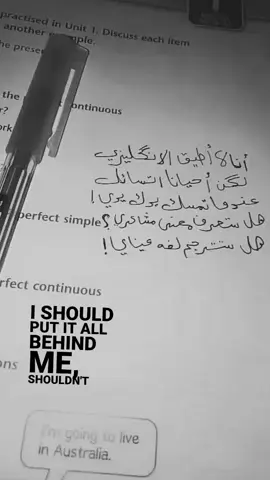 practised in Unit 1. Discuss each item
another example.
the prese
the
continuous
r?
work
أنا لا أطيق الإنگليزي
لكن أحيانا اتسائل
عندما تمسك يوك يدي !
هل ستعرف معنى مشاعري ؟
هل ستترجم لغه عيناي !
perfect simple
rfect continuous
I SHOULD
PUT IT ALL
BEHIND
ME,
SHOULDN'T
ons
I'm going to live
in Australia.